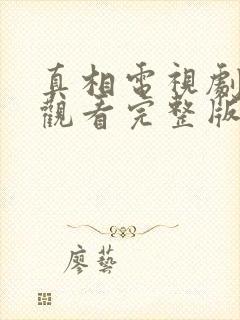 真相電視劇
觀看完整版
廖藝